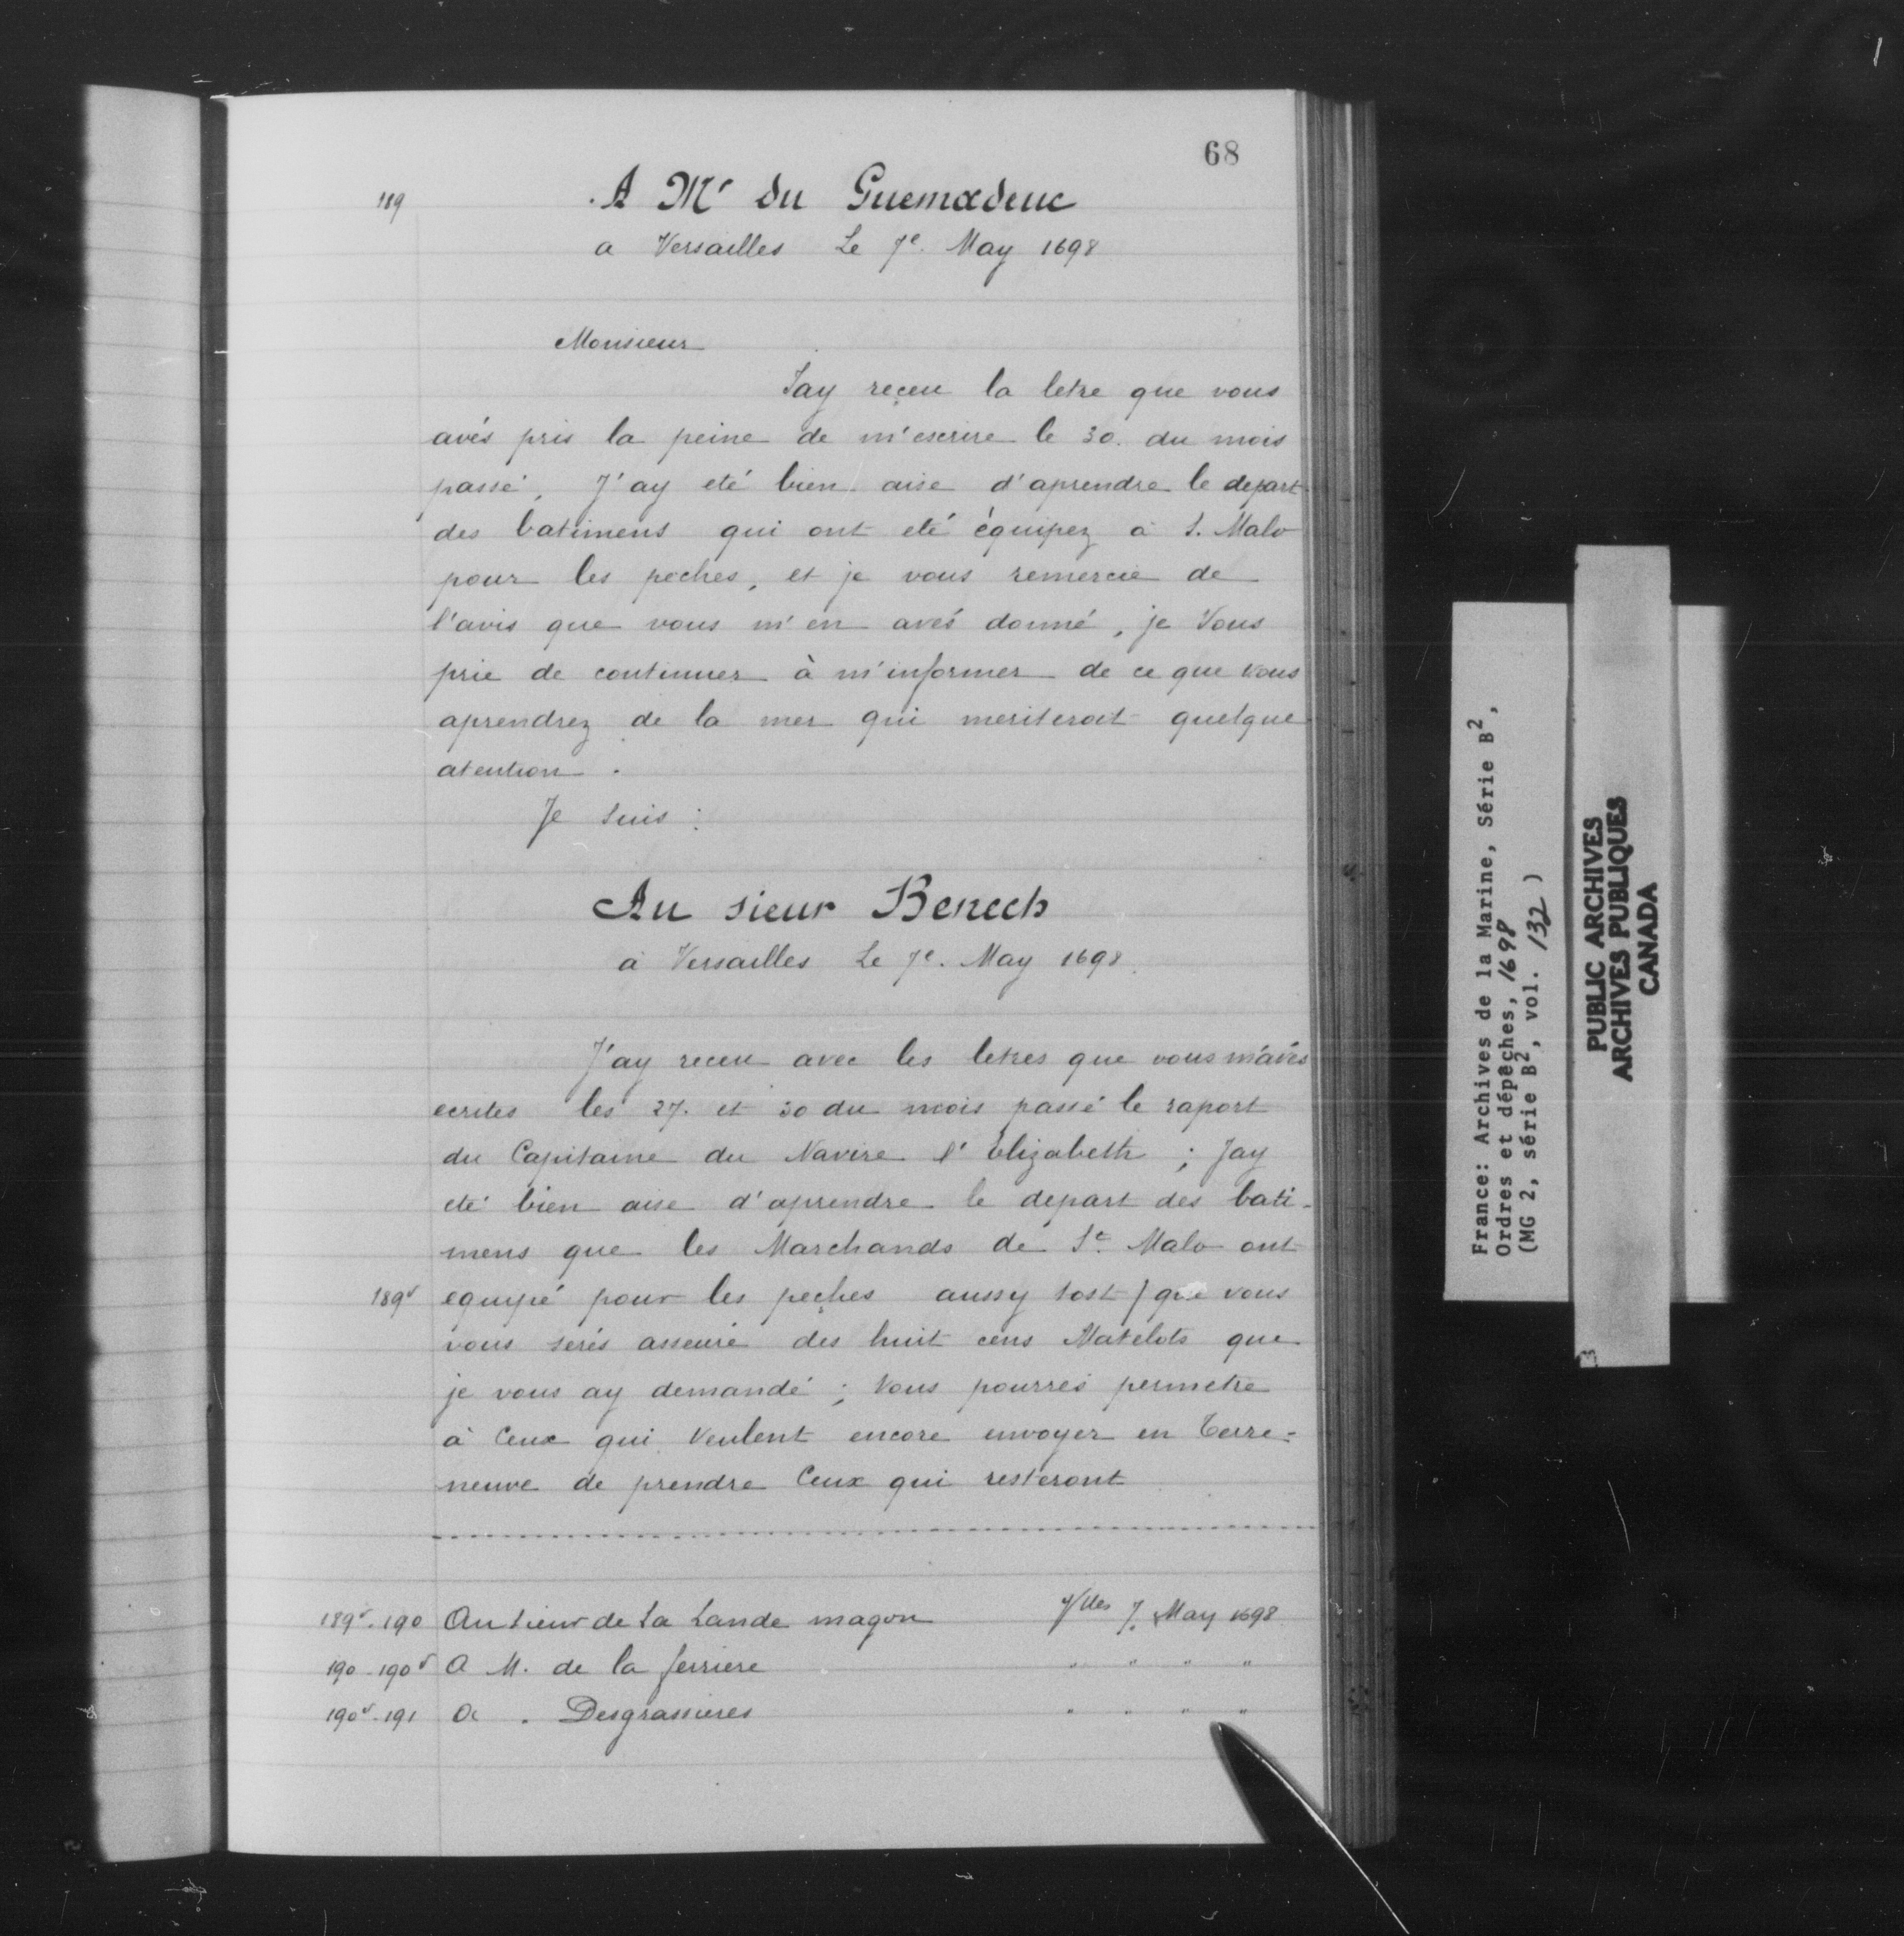 68
189 A Mr du Guemadeuc
a Versailles Le 7e. May 1698
Monsieur
Jay reçeu la letre que vous
avés pris la peine de m'escrire le 30. du mois
passé, J'ay eté bien aise d'aprendre le depart
des batimens qui ont eté équipez à S. Malo
pour les peches, et je vous remercie de
l'avis que vous m'en avés donné, je Vous
prie de continuer à m'informer de ce que vous
aprendrez de la mer qui meriteroit quelque
atention.
Je suis :
Au sieur Benech
à Versailles Le 7e. May 1698.
J'ay receu avec les letres que vous m'avés
ecrites les 27. et 30 du mois passé le raport
du Capitaine du Navire l'Elizabeth ; Jay
eté bien aise d'aprendre le depart des bati-
mens que les Marchands de St. Malo ont
189v equipé pour les peches aussy tost / que vous
vous serés asseuré des huit cens Matelots que
je vous ay demandé ; Vous pourrés permetre
à Ceux qui Veulent encore envoyer en Terre-
neuve de prendre Ceux qui resteront
189v-190 Au Sieur de La Lande magon V/lles 7. May 1698
190-190v A M. de la ferriere " " " "
190v-191 A . Desgrassieres " " " "
France: Archives de la Marine, Série B2,
Ordres et dépêches, 1698
(MG 2, série B2, vol. 132)
PUBLIC ARCHIVES
ARCHIVES PUBLIQUES
CANADA